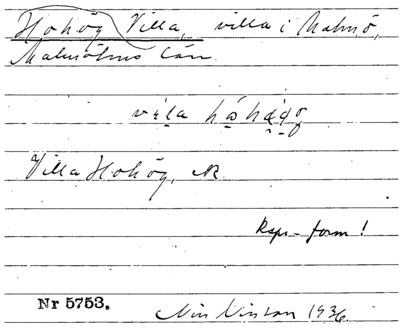 Hohög Villa, villa i Malmö,
Malmöhus län.
villa
Villa Hohög, R
Rspr-form!
Nr 5753.
Nils Nilsson 1936